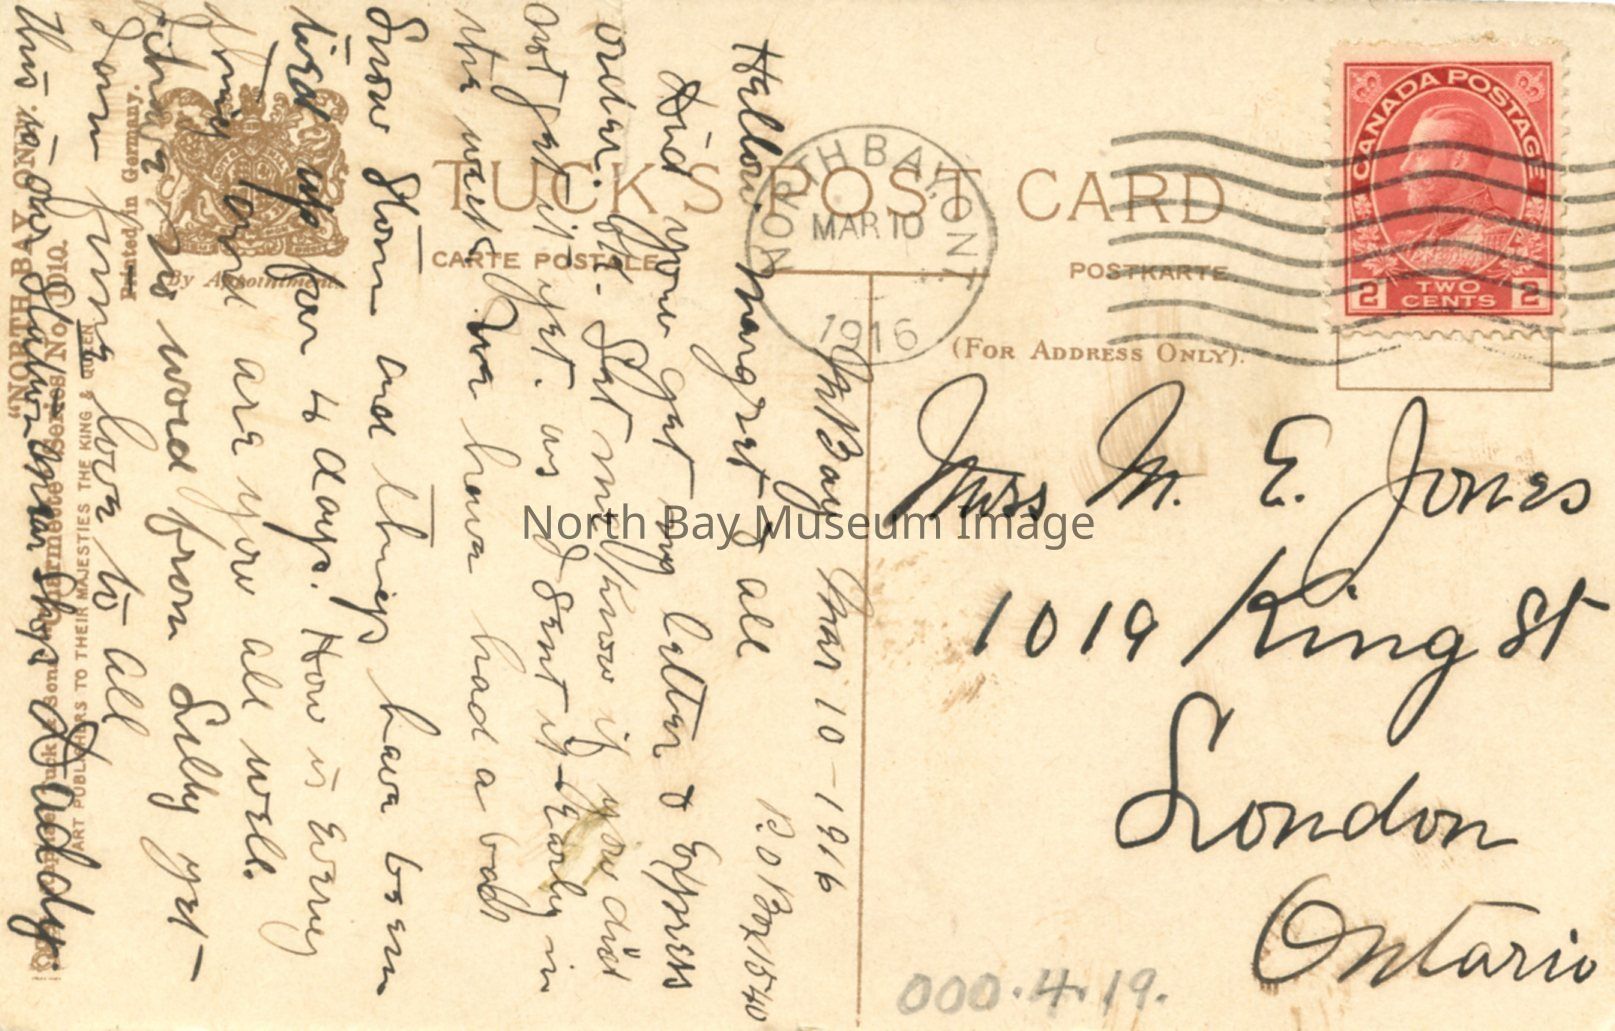 TUCK'S POST CARD
CARTE POSTALE
POSTKARTE
(FOR ADDRESS ONLY).
By Appointment.
NORTH BAY, ONT.
MAR 10
1916
CANADA POSTAGE
2 TWO CENTS 2
Miss M. E. Jones
1019 King St
London
Ontario
000.4.19.
North Bay Museum Image
Bay Mar 10 - 1916
P.O Box 1540
Hellow Margret & all
Did you get my letter & Express
order. Let me know if you did
not get it yet. as I sent it Early in
the week. We have had a bad
Snow Storm and things have been
tied up for 4 days. How is Every
thing and are you all well.
no word from Sully yet -
love to all
this is our Station and Shops Daddy.
"NORTH BAY, ONT."
Series No. 1010.
ART PUBLISHERS TO THEIR MAJESTIES THE KING & QUEEN
Printed in Germany.